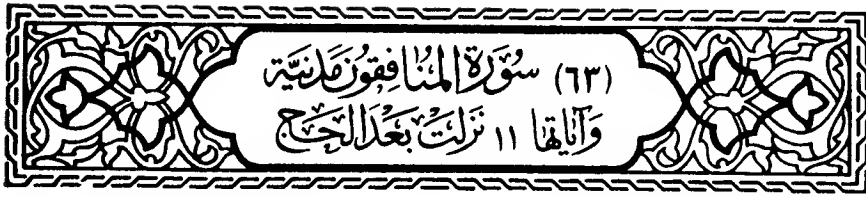 (٦٣) سُورَة المنَافِقون مَدَنيَّة
وَآيَاتها ١١ نَزلَتْ بَعْدَ الحَجّ